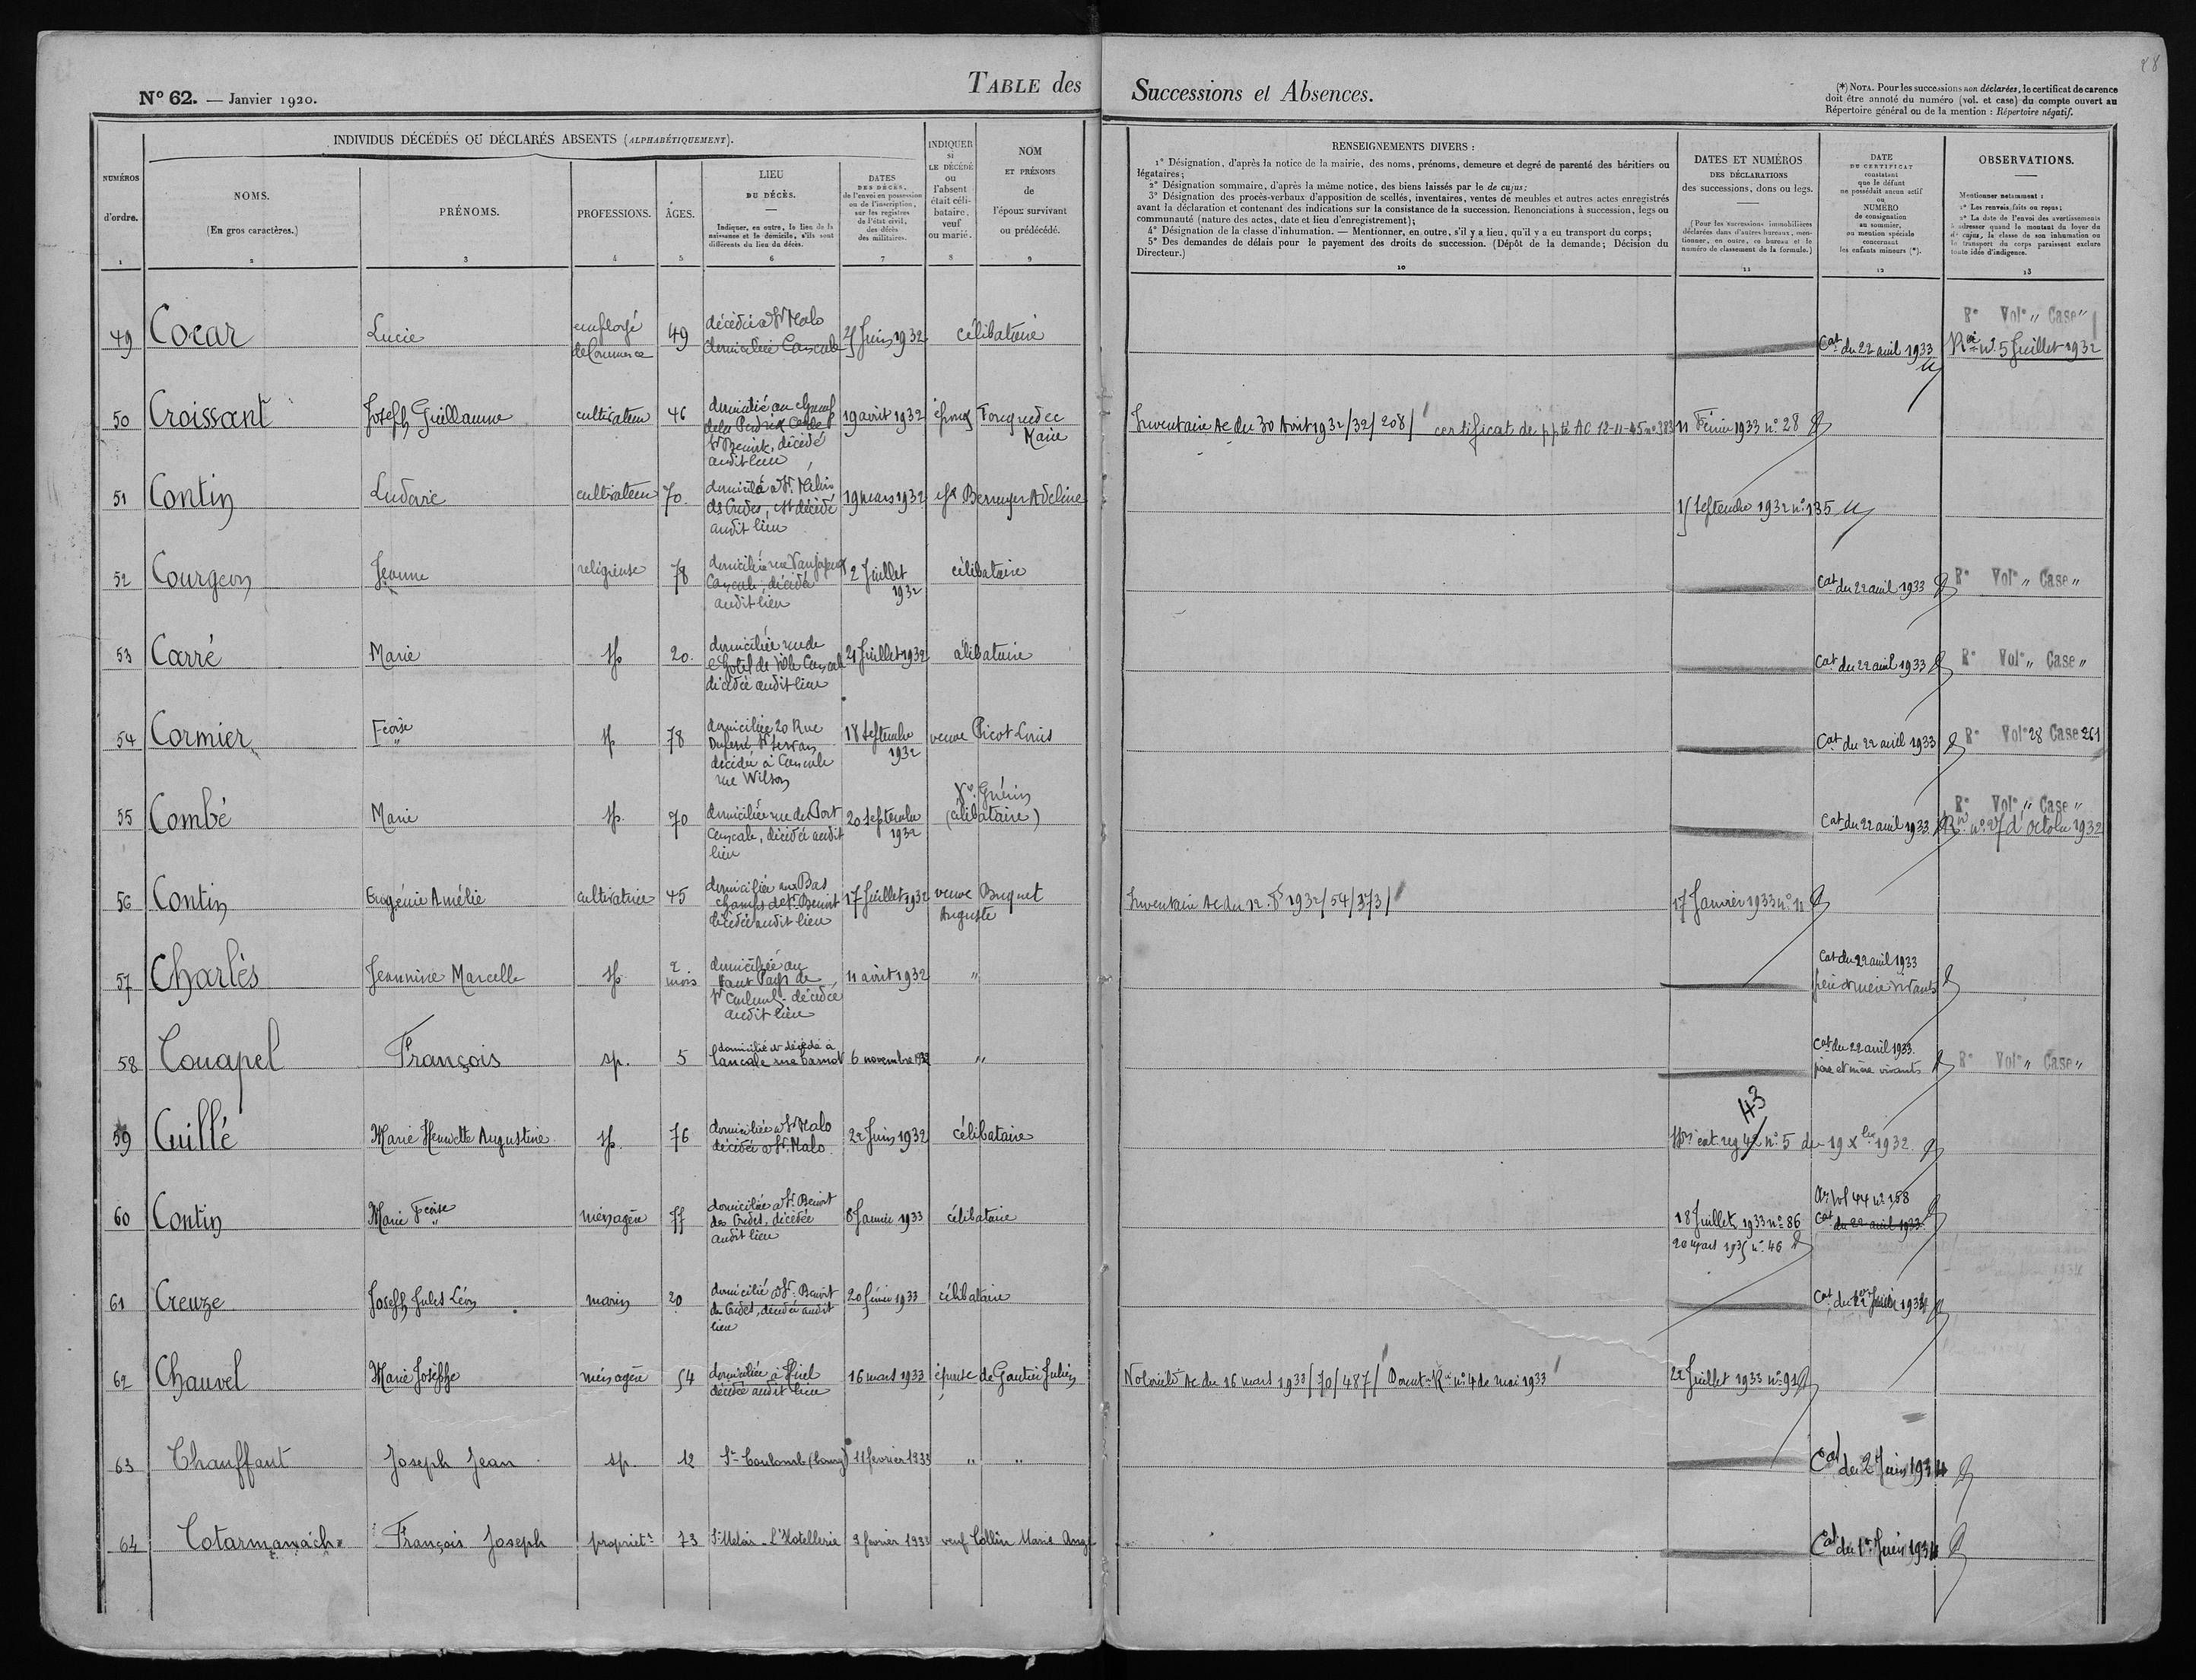 28
N° 62. — Janvier 1920.
TABLE des Successions et Absences.
(*) NOTA. Pour les successions non déclarées, le certificat de carence
doit être annoté du numéro (vol. et case) du compte ouvert au
Répertoire général ou de la mention : Répertoire négatif.
NUMÉROS
d'ordre.
1
INDIVIDUS DÉCÉDÉS OU DÉCLARÉS ABSENTS (ALPHABÉTIQUEMENT).
NOMS.
(En gros caractères.)
2
PRÉNOMS.
3
PROFESSIONS.
4
ÂGES.
5
LIEU
DU DÉCÈS.
Indiquer, en outre, le lieu de la
naissance et le domicile, s'ils sont
différents du lieu du décès.
6
DATES
DES DÉCÈS,
de l'envoi en possession
ou de l'inscription,
sur les registres
de l'état civil,
des décès
des militaires.
7
INDIQUER
si
LE DÉCÉDÉ
ou
l'absent
était céli-
bataire,
veuf
ou marié.
8
NOM
ET PRÉNOMS
de
l'époux survivant
ou prédécédé.
9
RENSEIGNEMENTS DIVERS :
1° Désignation, d'après la notice de la mairie, des noms, prénoms, demeure et degré de parenté des héritiers ou
légataires;
2° Désignation sommaire, d'après la même notice, des biens laissés par le de cujus;
3° Désignation des procès-verbaux d'apposition de scellés, inventaires, ventes de meubles et autres actes enregistrés
avant la déclaration et contenant des indications sur la consistance de la succession. Renonciations à succession, legs ou
communauté (nature des actes, date et lieu d'enregistrement);
4° Désignation de la classe d'inhumation. — Mentionner, en outre, s'il y a lieu, qu'il y a eu transport du corps;
5° Des demandes de délais pour le payement des droits de succession. (Dépôt de la demande; Décision du
Directeur.)
10
DATES ET NUMÉROS
DES DÉCLARATIONS
des successions, dons ou legs.
(Pour les successions immobilières
déclarées dans d'autres bureaux, men-
tionner, en outre, ce bureau et le
numéro de classement de la formule.)
11
DATE
DU CERTIFICAT
constatant
que le défunt
ne possédait aucun actif
OU
NUMÉRO
de consignation
au sommier,
ou mention spéciale
concernant
les enfants mineurs (*).
12
OBSERVATIONS.
Mentionner notamment :
1° Les renvois faits ou reçus;
2° La date de l'envoi des avertissements
à adresser quand le montant du loyer du
de cujus, la classe de son inhumation ou
le transport du corps paraissent exclure
toute idée d'indigence.
13
49 Cocar Lucie employé de Commerce 49 décédée à St Malo domiciliée Cancale Juin 1932 célibataire Cat du 22 avril 1933 R° Vol° " Case " n° 5 Juillet 1932
50 Croissant Joseph Guillaume cultivateur 46 domicilié au St Benoit, décédé audit lieu 19 avril 1932 époux Fouquedec Marie Inventaire Ac du 30 Avril 1932/32/208/ certificat de ppté AC 12-11-45 n° 383 11 Février 1933 n° 28
51 Contin Ludovic cultivateur 70. décédé audit lieu 19 mars 1932 Berruyer Adeline 15 Septembre 1932 n° 135
52 Courgeon Jeanne religieuse 78 domiciliée rue Cancale, décédée audit lieu 2 Juillet 1932 célibataire Cat du 22 avril 1933 R° Vol° " Case "
53 Carré Marie sp 20. domiciliée rue de l'hotel de Ville Cancale décédée audit lieu 21 Juillet 1932 célibataire Cat du 22 avril 1933 R° Vol° " Case "
54 Cormier Fcoise sp 78 domiciliée 20 Rue St Servan décédée à Cancale rue Wilson 18 Septembre 1932 veuve Picot Louis Cat du 22 avril 1933 R° Vol° 28 Case 261
55 Combé Marie sp. 70 domiciliée rue du Port Cancale, décédée audit lieu 20 Septembre 1932 Ve Guérin (célibataire) Cat du 22 avril 1933 R° Vol° " Case " n° 27 d'octobre 1932
56 Contin Eugénie Amélie cultivatrice 45 domiciliée aux Bas champs de St Benoit décédée audit lieu 17 Juillet 1932 veuve Buquet Auguste Inventaire Ac du 12 1932/54/373/ 17 Janvier 1933 n° 11
57 Charles Jeannine Marcelle sp 2 mois domiciliée au St Coulomb - décédée audit lieu 11 avril 1932 " Cat du 22 avril 1933 père et mère vivants
58 Couapel François sp. 5 domicilié et décédé à Cancale rue Carnot 6 novembre 1932 " Cat du 22 avril 1933. père et mère vivants R° Vol° " Case "
59 Cuillé Marie Henriette Augustine sp. 76 domiciliée à St Malo décédée à St Malo. 22 Juin 1932 célibataire 43 reg 42 n° 5 de 19 Xbre 1932
60 Contin Marie Fcoise ménagère 77 domiciliée à St Benoit des Ondes, décédée audit lieu 8 Janvier 1933 célibataire 18 Juillet 1933 n° 86 20 mars 1935 n° 46 Vol 44 n° 158 Cat du 22 avril 1933
61 Creuze Joseph Jules Léon marin 20 domicilié à St Benoit des Ondes, décédé audit lieu 20 février 1933 célibataire Cat du 1934
62 Chauvel Marie Josèphe ménagère 54 domiciliée à décédée audit lieu 16 mars 1933 épouse de Gautier Julien Notoriété Ac du 16 mars 1933/70/487/ n° 4 de mai 1933 22 Juillet 1933 n° 91
63 Chauffaut Joseph Jean sp. 12 St Coulomb (bourg) 11 février 1933 " " Cat du 2 Juin 1934
64 Cotarmanac'h François Joseph propriétre 73 St Meloir - L'Hotellerie 9 février 1933 veuf Collin Marie Ange Cat du 1er Juin 1934